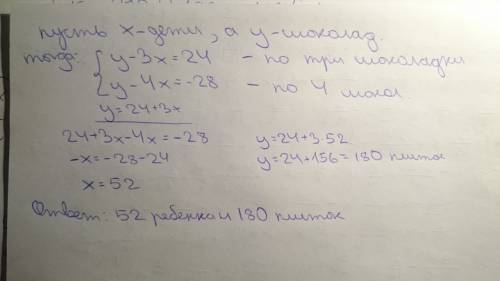 пусть х-дети, а у-шоколад.
тогда: { y-3x=24 - по три шоколадки
{ y-4x=-28 - по 4 шокол
y=24+3x
24+3x-4x=-28 y=24+3·52
-x=-28-24 y=24+156=180 плиток
x=52
Ответ: 52 ребенка и 180 плиток